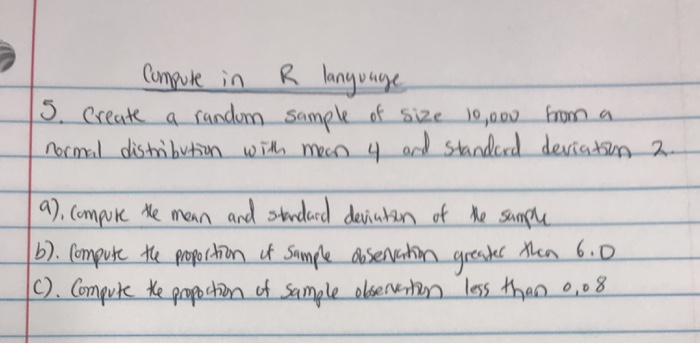 Compute in R language
5. Create a random sample of size 10,000 from a
normal distribution with mean 4 and standard deviation 2.
a). Compute the mean and standard deviation of the sample
b). Compute the proportion of sample observation greater then 6.0
c). Compute the propoction of sample observation less than 0.08